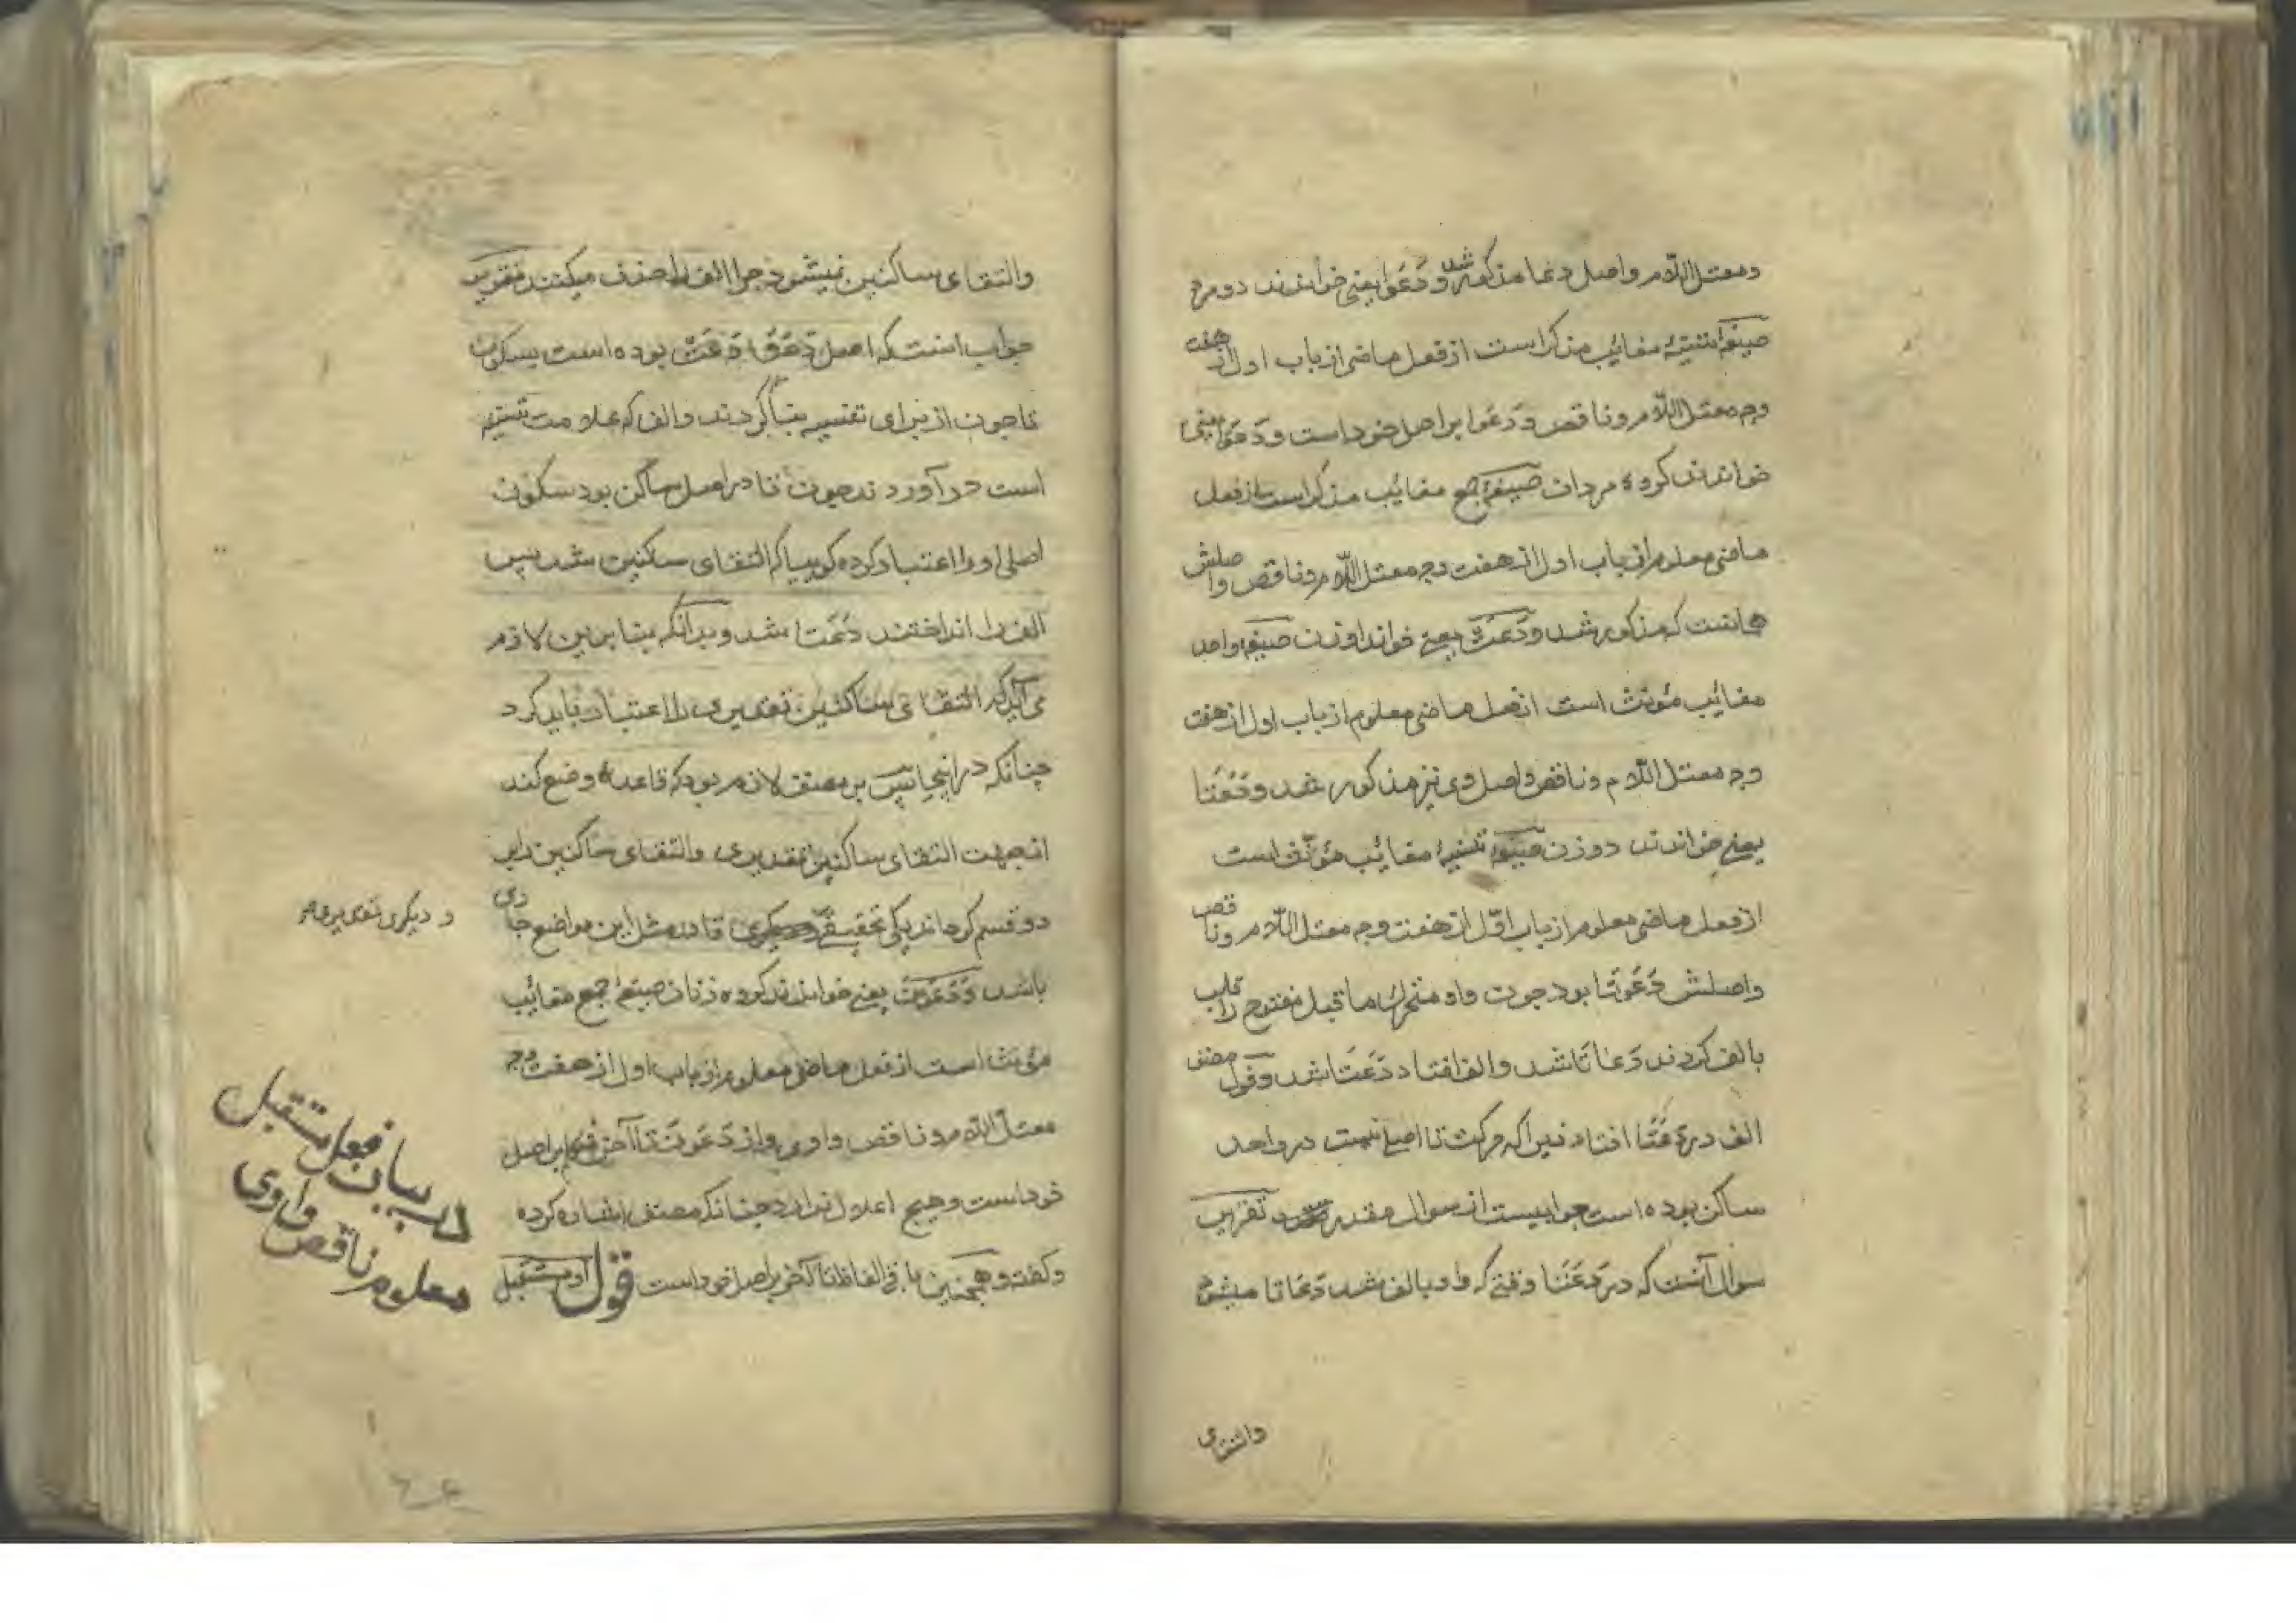 ومعتل اللام واصل دعا مذکور شد و دَعَوَا یعنی خواندند دو مرد
صیغهٔ تثنیهٔ مغائب مذکر است از فعل ماضی از باب اول از هفت
وجه معتل اللام و ناقص و دَعَوا بر اصل خود است و دَعَوْا یعنی
خواندند کروه مردان صیغهٔ جمع مغائب مذکر است از فعل
ماضی معلوم از باب اول از هفت وجه معتل اللام و ناقص و اصلش
هانست که مذکور شد و دَعَتْ یعنی خواند او زن صیغهٔ واحد
مغائب مؤنث است از فعل ماضی معلوم از باب اول از هفت
وجه معتل اللام و ناقص و اصل وی نیز مذکور شد و دَعَتَا
یعنی خواندند دو زن صیغهٔ تثنیهٔ مغائب مؤنث است
از فعل ماضی معلوم از باب اوّل از هفت وجه معتل اللام و ناقص
واصلش دَعَوَتَا بود چون واو متحرک ماقبل مفتوح را قلب
بالف کردند دَعَاتَا شد و الف افتاد دَعَتَا شد و قول مصنف
الف در دَعَتَا افتاد زیرا که حرکت تا اصلی نیست در واحد
ساکن بوده است جوابیست از سوال مقدر تقریر
سوال آنست که در دَعَتَا وقتی که واو بالف شد دَعَاتا میشود
والتقای
والتقای ساکنین نمیشود چرا الف را حذف میکنند تقریر
جواب انست که اصل دَعَتَا دَعَتْ بوده است بسکون
تا چون از برای تثنیه بنا کردند و الف که علامت تثنیه
است در آوردند چون تا در اصل ساکن بود سکون
اصلی او را اعتبار کرده کوییا که التقای ساکنین شد پس
الف را انداختند دَعَتَا شد و بدانکه بنا برین لازم
می آید که التقای ساکنین تقدیری را اعتبار باید کرد
چنانکه در اینجا پس بر مصنف لازم بود که قاعدهٔ وضع کند
از جهت التقای ساکنین تقدیری والتقای ساکنین را بر
دو قسم کرداند یکی تحقیقی تا در مثل این مواضع جاری
و دیکری تقدیری
باشد وَدَعَوْنَ یعنی خواندند کروه زنان صیغهٔ جمع مغائب
مؤنث است از فعل ماضی معلوم از باب اول از هفت وجه
معتل اللام و ناقص واوی و از دَعَوْنَ تا آخر بر اصل
خود است و هیچ اعلال ندارد چنانکه مصنف اشاره کرده
و کفت و همچنین باقی الفاظ تا آخر بر اصل خود است قول او مستقبل
در بیان فعل مستقبل
معلوم ناقص واوی